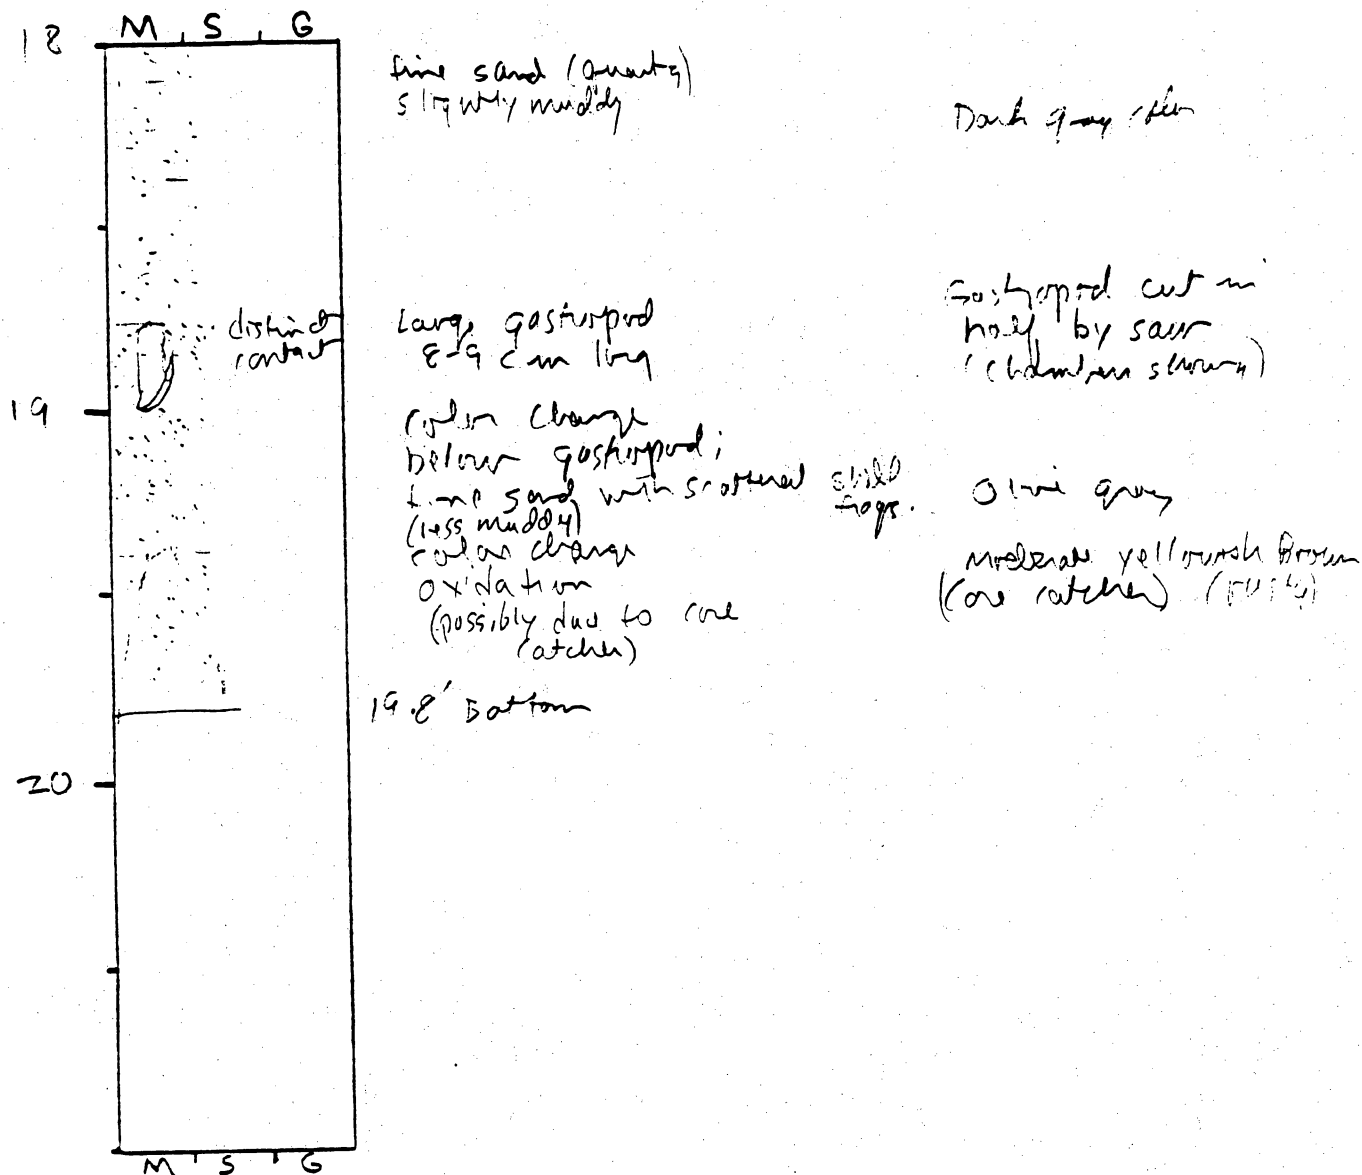 M S G
18
fine sand (quartz)
slightly muddy
Dark gray color
distinct
contact
Large gastropod
8-9 cm long
Gastropod cut in
half by saw
(chambers showing)
19
color change
below gastropod;
fine sand with scattered shell
frags.
(less muddy)
Olive gray
color change
oxidation
(possibly due to core
catcher)
Moderate yellowish Brown
(core catcher) (rusty)
19.8' Bottom
20
M S G